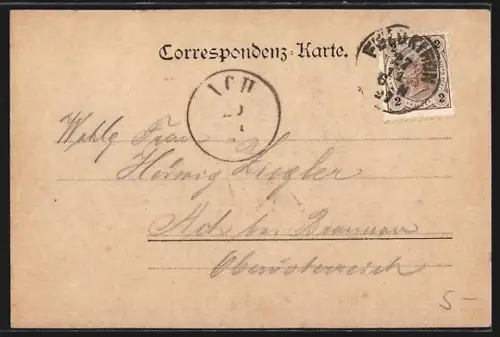 Correspondenz-Karte.
2 2
2 2
FELDKIRCH
ACH
Wohlg. Frau
Hedwig Ziegler
Ach bei Braunau
Oberösterreich
5-